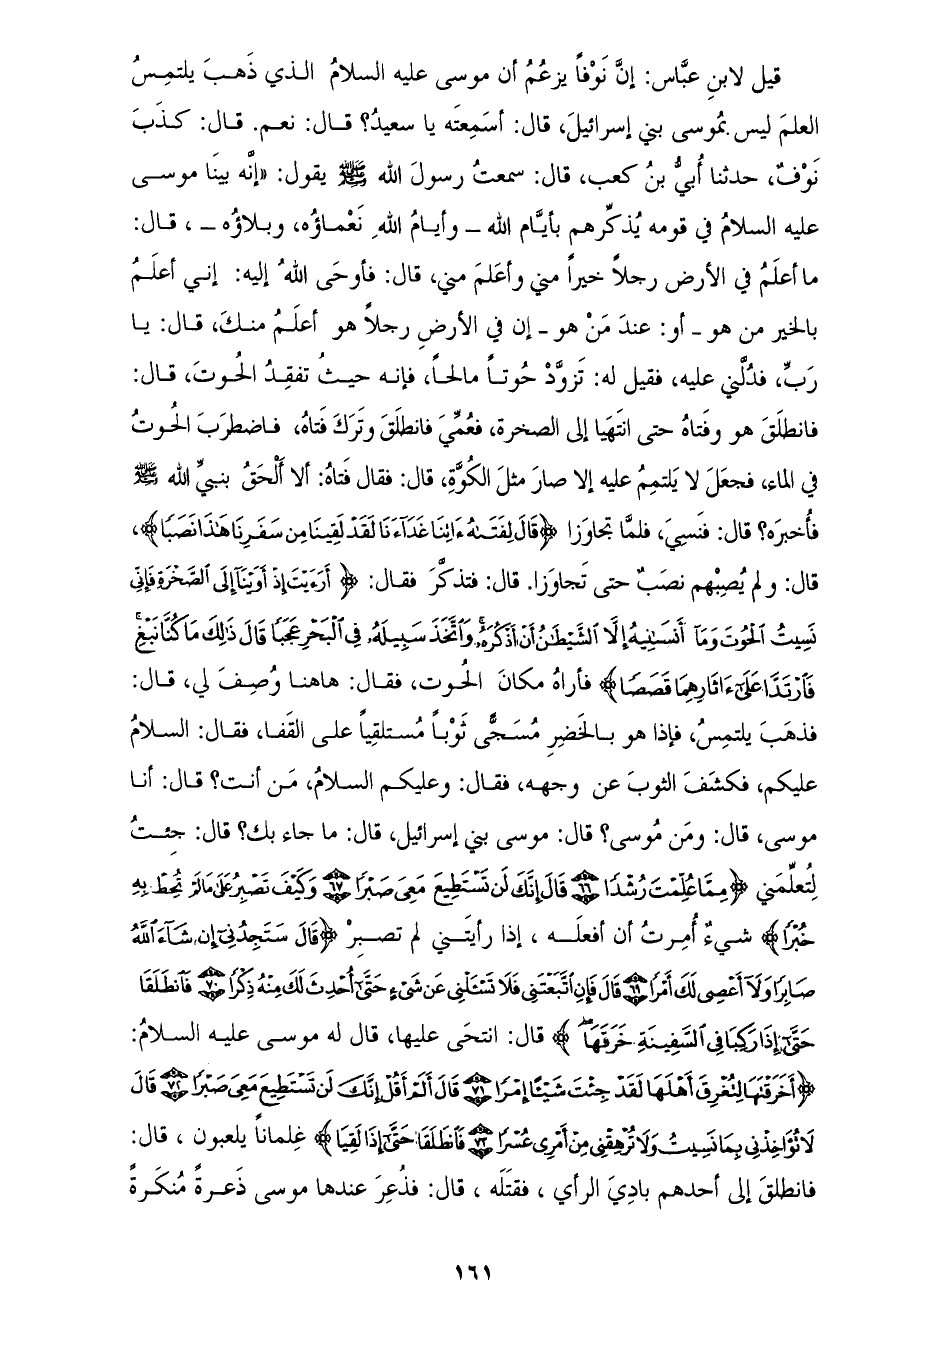 قيل لابنِ عبَّاس: إنَّ نَوْفاً يزعُمُ أن موسى عليه السلامُ الذي ذَهبَ يلتمِسُ
العلمَ ليس بمُوسى بني إسرائيلَ، قال: أسَمِعتَه يا سعيدُ؟ قال: نعم. قال: كذَبَ
نَوْفٌ، حدثنا أُبيُّ بنُ كعب، قال: سمعتُ رسولَ الله ﷺ يقول: «إنَّه بينَا موسى
عليه السلامُ في قومه يُذكِّرهم بأيَّام الله ـ وأيامُ اللهِ نَعْماؤه، وبلاؤه ـ ، قال:
ما أعلَمُ في الأرض رجلاً خيراً مني وأعَلمَ مني، قال: فأوحَى اللهُ إليه: إني أعلَمُ
بالخير من هو ـ أو: عندَ مَنْ هو ـ إن في الأرضِ رجلاً هو أعلَمُ منكَ، قال: يا
رَبِّ، فدُلَّني عليه، فقيل له: تَزوَّدْ حُوتاً مالحاً، فإنه حيثُ تفقِدُ الحُوتَ، قال:
فانطلَقَ هو وفَتاهُ حتى انتَهَيا إلى الصخرة، فعُمِّيَ فانطلَقَ وتَرَكَ فَتاهُ، فاضطرَبَ الحُوتُ
في الماء، فجعَلَ لا يَلتمِمُ عليه إلا صارَ مثلَ الكُوَّةِ، قال: فقال فَتاهُ: ألا أَلْحَقُ بنبيِّ الله ﷺ
فأُخبرَه؟ قال: فنَسِيَ، فلمَّا تجاوَزا ﴿قَالَ لِفَتَىٰهُ ءَاتِنَا غَدَآءَنَا لَقَدْ لَقِينَا مِن سَفَرِنَا هَٰذَا نَصَبًا﴾،
قال: ولم يُصِبْهم نصَبٌ حتى تَجاوَزا. قال: فتذكَّرَ فقال: ﴿أَرَءَيْتَ إِذْ أَوَيْنَآ إِلَى ٱلصَّخْرَةِ فَإِنِّى
نَسِيتُ ٱلْحُوتَ وَمَآ أَنسَىٰنِيهُ إِلَّا ٱلشَّيْطَٰنُ أَنْ أَذْكُرَهُۥ ۚ وَٱتَّخَذَ سَبِيلَهُۥ فِى ٱلْبَحْرِ عَجَبًا قَالَ ذَٰلِكَ مَا كُنَّا نَبْغِ ۚ
فَٱرْتَدَّا عَلَىٰٓ ءَاثَارِهِمَا قَصَصًا﴾ فأراهُ مكانَ الحُوت، فقال: هاهنا وُصِفَ لي، قال:
فذهَبَ يلتمِسُ، فإذا هو بالخَضِرِ مُسَجًّى ثَوْباً مُستلقِياً على القَفا، فقال: السلامُ
عليكم، فكشَفَ الثوبَ عن وجهه، فقال: وعليكم السلامُ، مَن أنت؟ قال: أنا
موسى، قال: ومَن مُوسى؟ قال: موسى بني إسرائيل، قال: ما جاء بك؟ قال: جئتُ
لِتُعلِّمَني ﴿مِمَّا عُلِّمْتَ رُشْدًا ٦٦ قَالَ إِنَّكَ لَن تَسْتَطِيعَ مَعِىَ صَبْرًا ٦٧ وَكَيْفَ تَصْبِرُ عَلَىٰ مَا لَمْ تُحِطْ بِهِۦ
خُبْرًا﴾ شيءٌ أُمِرتُ أن أفعلَه ، إذا رأيتَني لم تصبِرْ ﴿قَالَ سَتَجِدُنِىٓ إِن شَآءَ ٱللَّهُ
صَابِرًا وَلَآ أَعْصِى لَكَ أَمْرًا ٦٩ قَالَ فَإِنِ ٱتَّبَعْتَنِى فَلَا تَسْـَٔلْنِى عَن شَىْءٍ حَتَّىٰٓ أُحْدِثَ لَكَ مِنْهُ ذِكْرًا ٧٠ فَٱنطَلَقَا
حَتَّىٰٓ إِذَا رَكِبَا فِى ٱلسَّفِينَةِ خَرَقَهَا ۖ﴾ قال: انتحَى عليها، قال له موسى عليه السلامُ:
﴿أَخَرَقْتَهَا لِتُغْرِقَ أَهْلَهَا لَقَدْ جِئْتَ شَيْـًٔا إِمْرًا ٧١ قَالَ أَلَمْ أَقُلْ إِنَّكَ لَن تَسْتَطِيعَ مَعِىَ صَبْرًا ٧٢ قَالَ
لَا تُؤَاخِذْنِى بِمَا نَسِيتُ وَلَا تُرْهِقْنِى مِنْ أَمْرِى عُسْرًا ٧٣ فَٱنطَلَقَا حَتَّىٰٓ إِذَا لَقِيَا﴾ غِلماناً يلعبون ، قال:
فانطلقَ إلى أحدهم بادِيَ الرأي ، فقتَلَه ، قال: فذُعِرَ عندها موسى ذَعرةً مُنكَرةً
١٦١